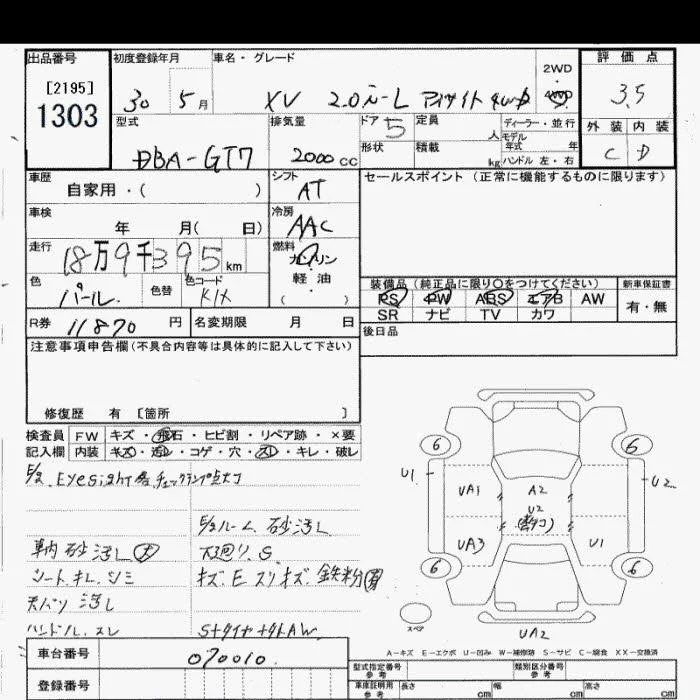 出品番号
[2195]
1303
初度登録年月
30 5月
車名・グレード
XV 2.0i-L アイサイト 4WD
2WD
4WD
評価点
3.5
外装 内装
C D
型式
DBA-GT7
排気量
2000cc
ドア
5
定員
人
形状
積載
kg
ディーラー・並行
モデル年式 年
ハンドル 左・右
車歴
自家用・( )
シフト
AT
車検
年 月( 日)
冷房
AAC
走行
18万9千395km
燃料
ガソリン
軽油
・( )
色
パール
色替
色コード
K1X
R券 11870 円
名変期限 月 日
セールスポイント(正常に機能するものに限ります)
装備品(純正品に限り〇をつけてください)
PS PW ABS エアB AW
SR ナビ TV カワ
新車保証書
有・無
後日品
注意事項申告欄(不具合内容等は具体的に記入して下さい)
修復歴 有 [箇所 ]
検査員記入欄
FW キズ・飛石・ヒビ割・リペア跡・×要
内装 キズ・汚レ・コゲ・穴・スレ・キレ・破レ
Eyesight 各チェックランプ点灯
車内 砂汚レ 大
シート キレ シミ
天バリ 汚レ
ハンドル スレ
ルーム 砂汚レ
下廻り S
キズ E スリキズ 鉄粉
Sタイヤ+外AW
6 6
U1 U2
UA1 A2
U2
UA3 U1
6 6
スペア
UA2
A-キズ E-エクボ U-凹み W-補修跡 S-サビ C-腐食 XX-交換済
車台番号 070010
登録番号
型式指定番号 参考
類別区分番号 参考
車庫証明用 参考
長さ cm 幅 cm 高さ cm